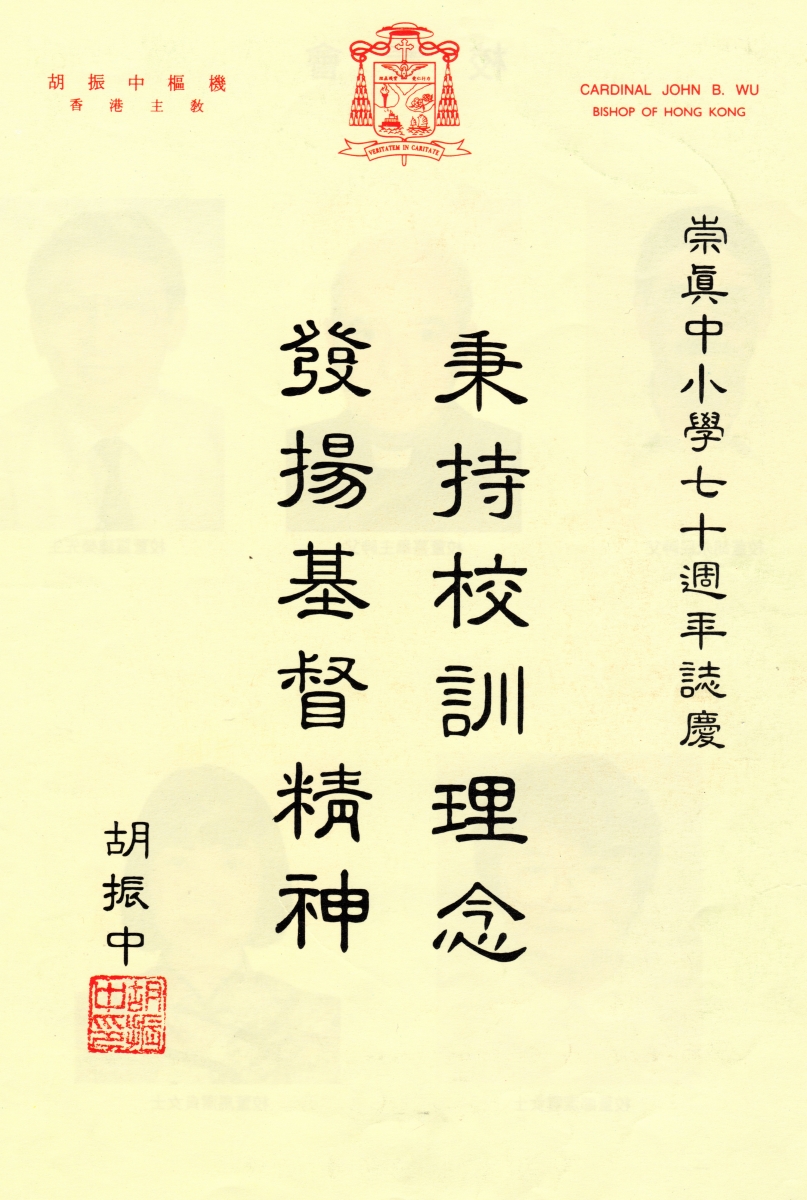 胡振中樞機
香港主教
CARDINAL JOHN B. WU
BISHOP OF HONG KONG
VERITATEM IN CARITATE
崇眞中小學七十週年誌慶
秉持校訓理念
發揚基督精神
胡振中
胡振中印